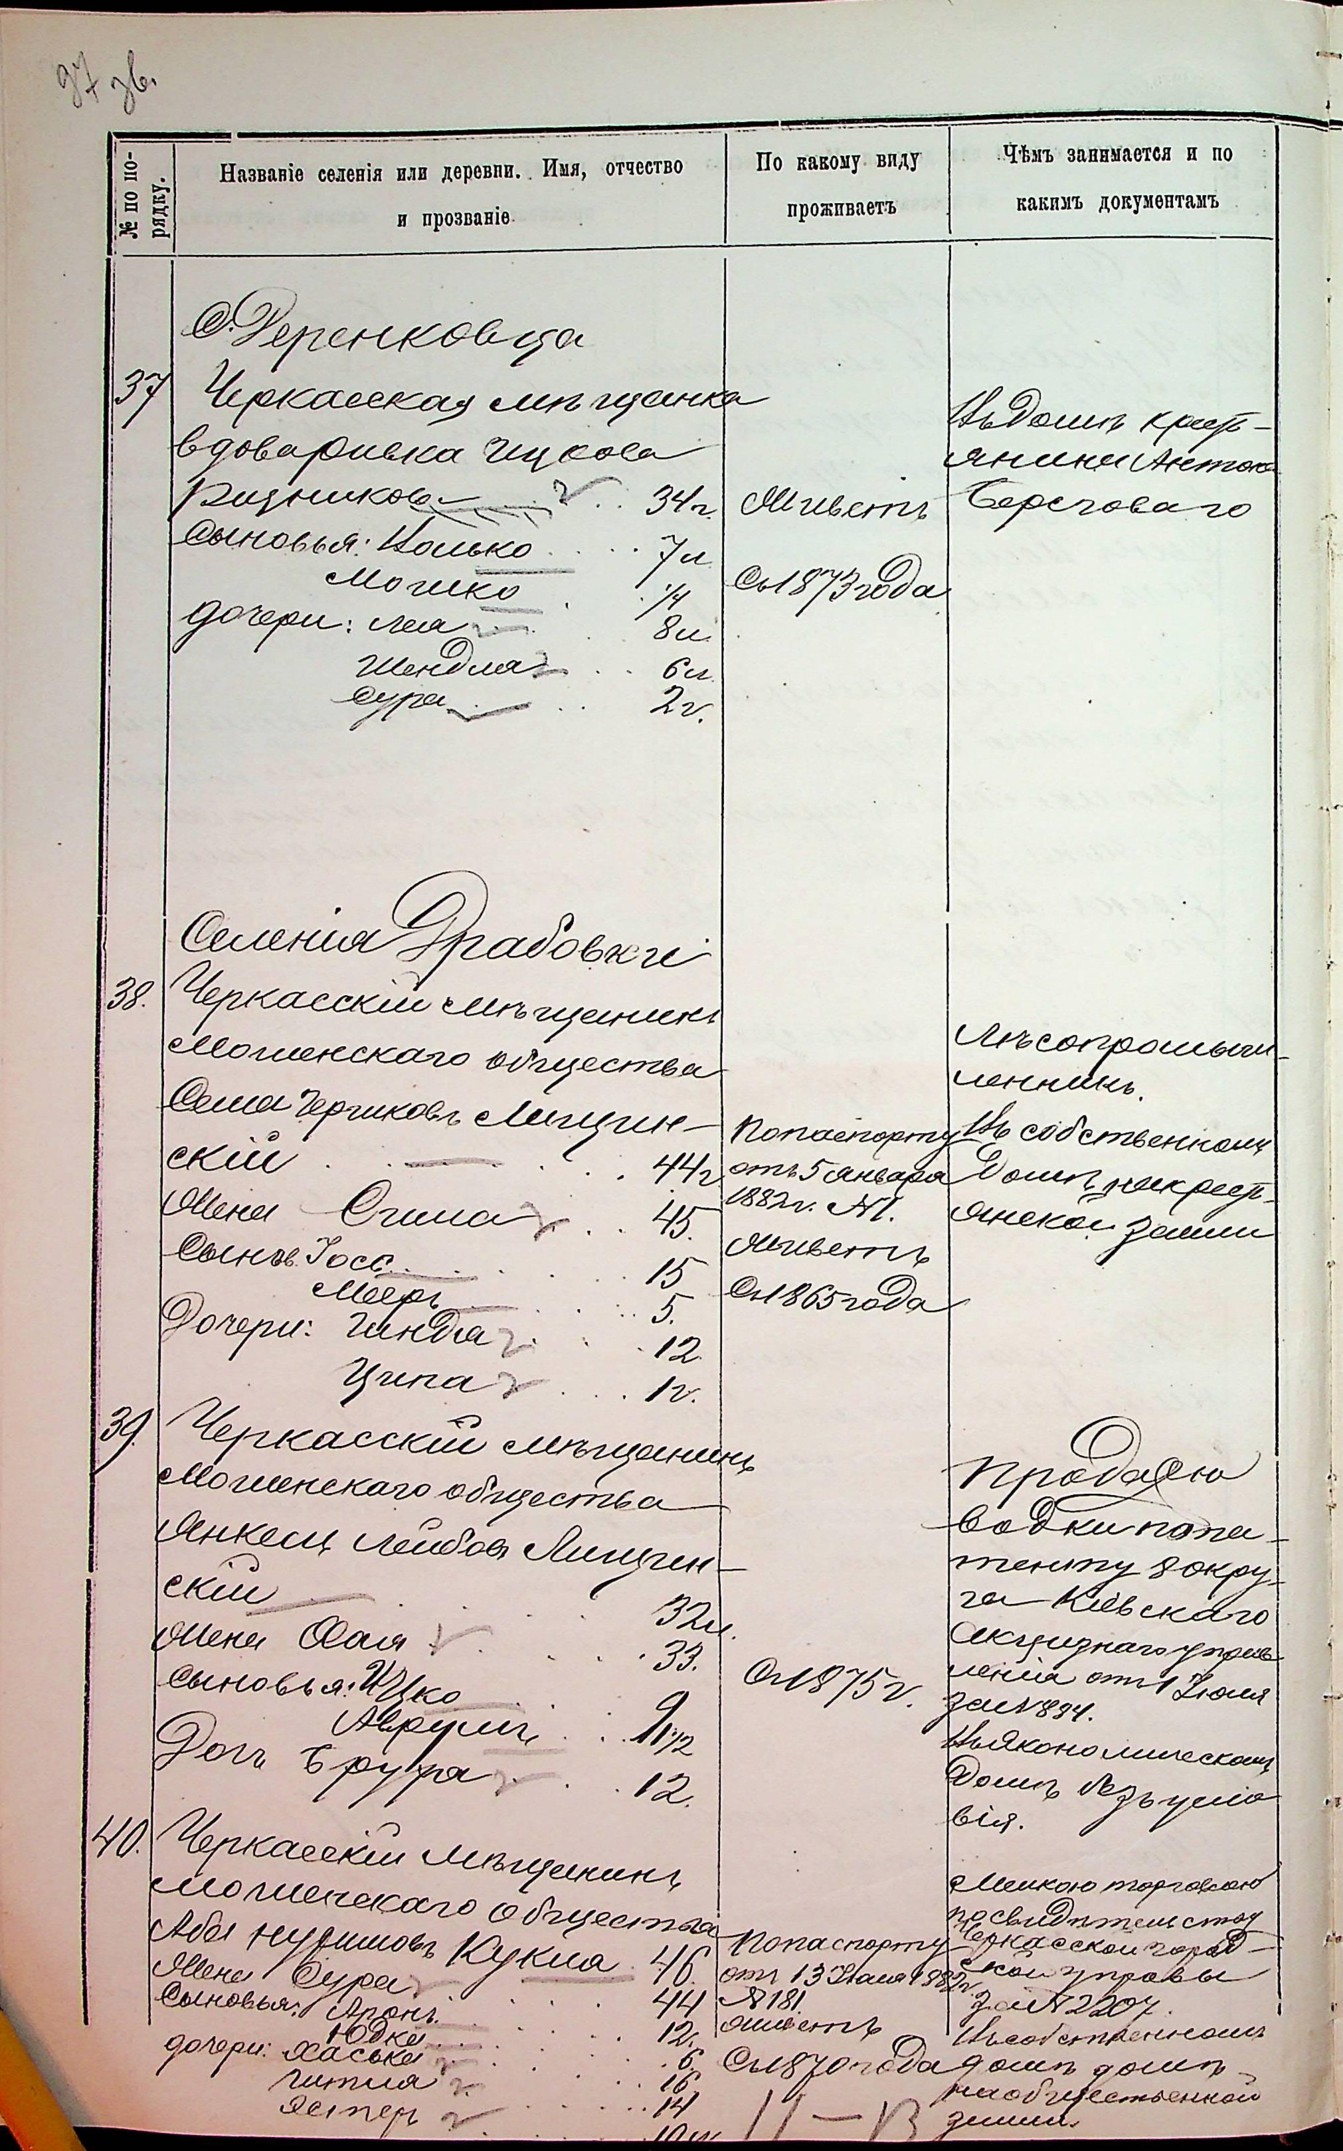 97 зв.
№ по по-
рядку.
Названіе селенія или деревни. Имя, отчество
и прозваніе
По какому виду
проживаетъ
Чѣмъ занимается и по
какимъ документамъ
С. Деренковца
37 Черкасская мѣщанка
вдова Ривка Ицкова
Резникова 34 г.
Сыновья: Волько 7 л
Мошко 1/4
дочери: Леа 8 л.
Шендля 6 л.
Сура 2 г.
Живетъ
Съ 1873 года
Въ домѣ крестъ-
янина Антона
Берегового
Селенія Драбовки
38. Черкасскій мѣщанинъ
Мошенскаго общества
Сема Гершковъ Лищин-
скій 44 г
Жена Сима 45.
Сынъ Іось 15
Мееръ 5.
Дочери: Гинда 12
Ципа 1 г.
По паспорту
отъ 5 Января
1882 г. №1.
Живетъ
Съ 1865 года
Лѣсопромыш-
ленникъ.
Въ собственномъ
домѣ на крестъ-
янской земли
39. Черкасскій мѣщанинъ
Мошенскаго общества
Янкель Лейбовъ Лищин-
скій 32 л.
Жена Хая 33.
Сыновья: Ицко 9
Аврумъ 1 1/2
Дочь Брура 12.
Съ 1875 г.
Продажею
водки по па-
тенту 8 окру-
га Кіевскаго
Акцизнаго управ
ленія отъ 1 Іюля
за №894.
Въ экономическомъ
домѣ безъ усло
вія.
40. Черкасскій мѣщанинъ
Мошенскаго общества
Аба Нухимовъ Кукла 46.
Жена Сура 44
Сыновья: Аронъ 12.
Юдка 6
дочери: Хаська 16
Гитля 14
Эстеръ 10 л
По паспорту
отъ 13 Мая 1882 г.
№181
живетъ
Съ 1870 года
11 — 13
Мелкою торговлею
по свидѣтельству
Черкасской город-
ской управы
за №2207.
Въ собственномъ
домѣ домъ
на общественной
земли.